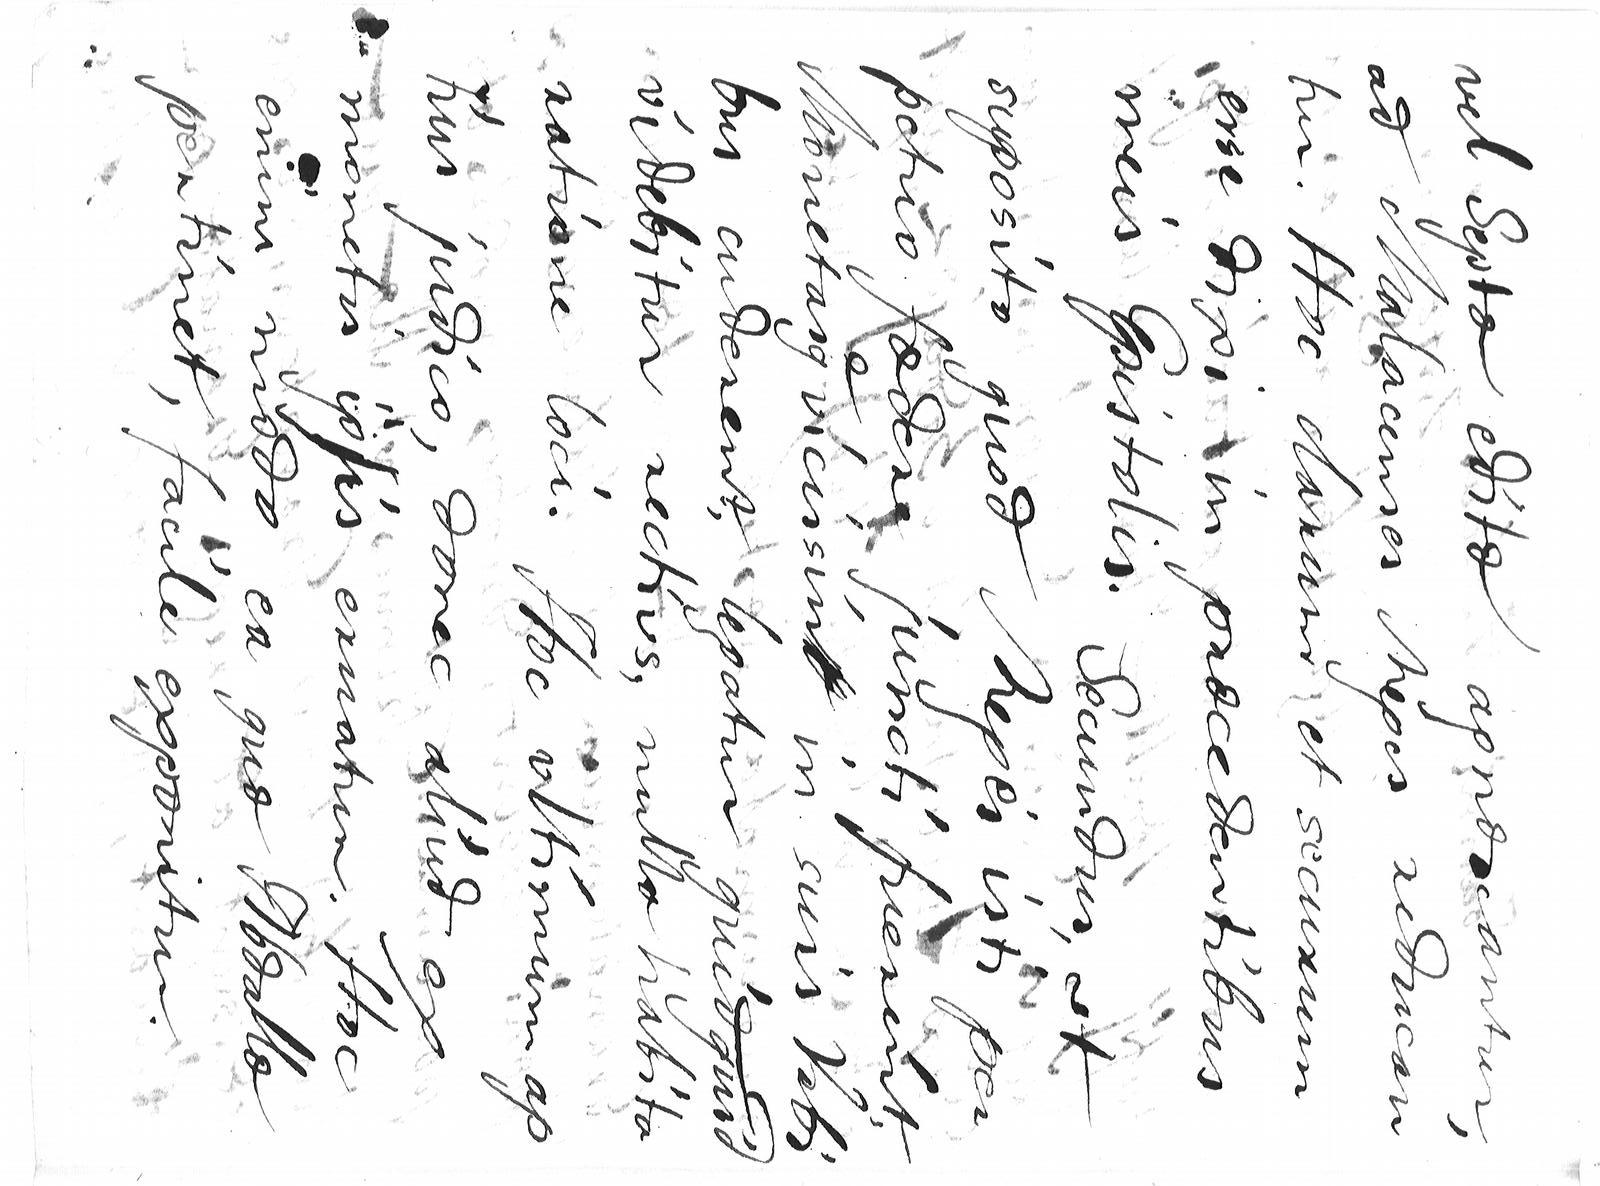 vel Septa edita agnoscantur,
ad Malacenses Reges reducan
tur. Hoc clarum et securum
esse dixi in præcedentibus
meis Epistolis. Secundus, est
supposito quod Reges isti per
patrio fœdere juncti fuerint
Monetasq vicissim, in suis Vrbi
bus cuderent, legatur quidquid
videbitur rectius, nulla habita
ratione loci. Hoc vltimum ap
tius judico, donec aliud ex
monetis ipsis eruatur. Hæc
enim nuda ea quæ Abdalla
pertinet, facile exponitur.